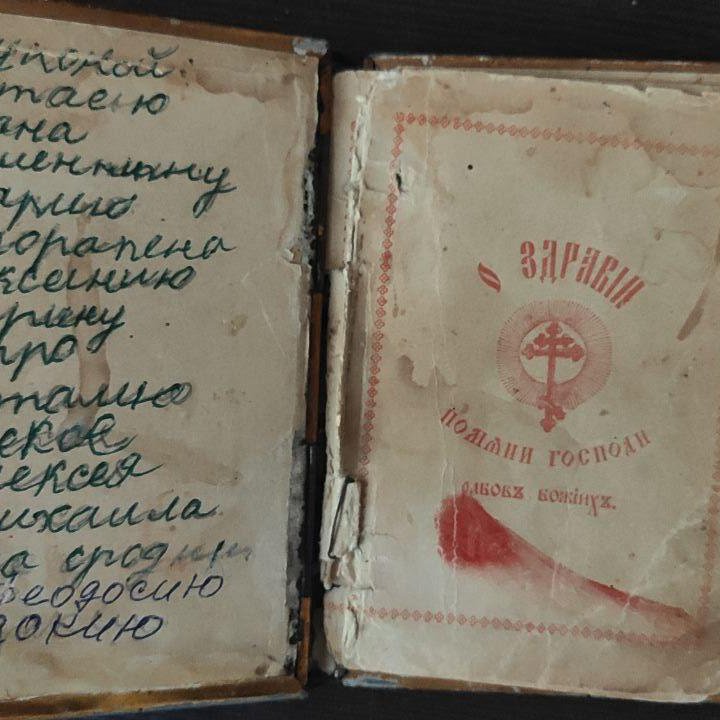 упокой:
тасию
ана
лентину
арию
ксению
рину
тро
талию
еков
лексея
ихаила
а сродни
Феодосию
докию
О ЗДРАВІИ
ПОМѦНИ ГОСПОДИ
рабовъ божіихъ.